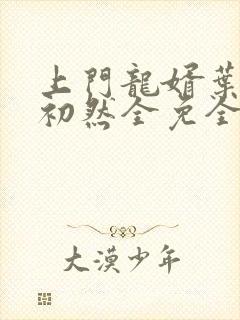 上門龍婿葉
初然全免全
大漠少年